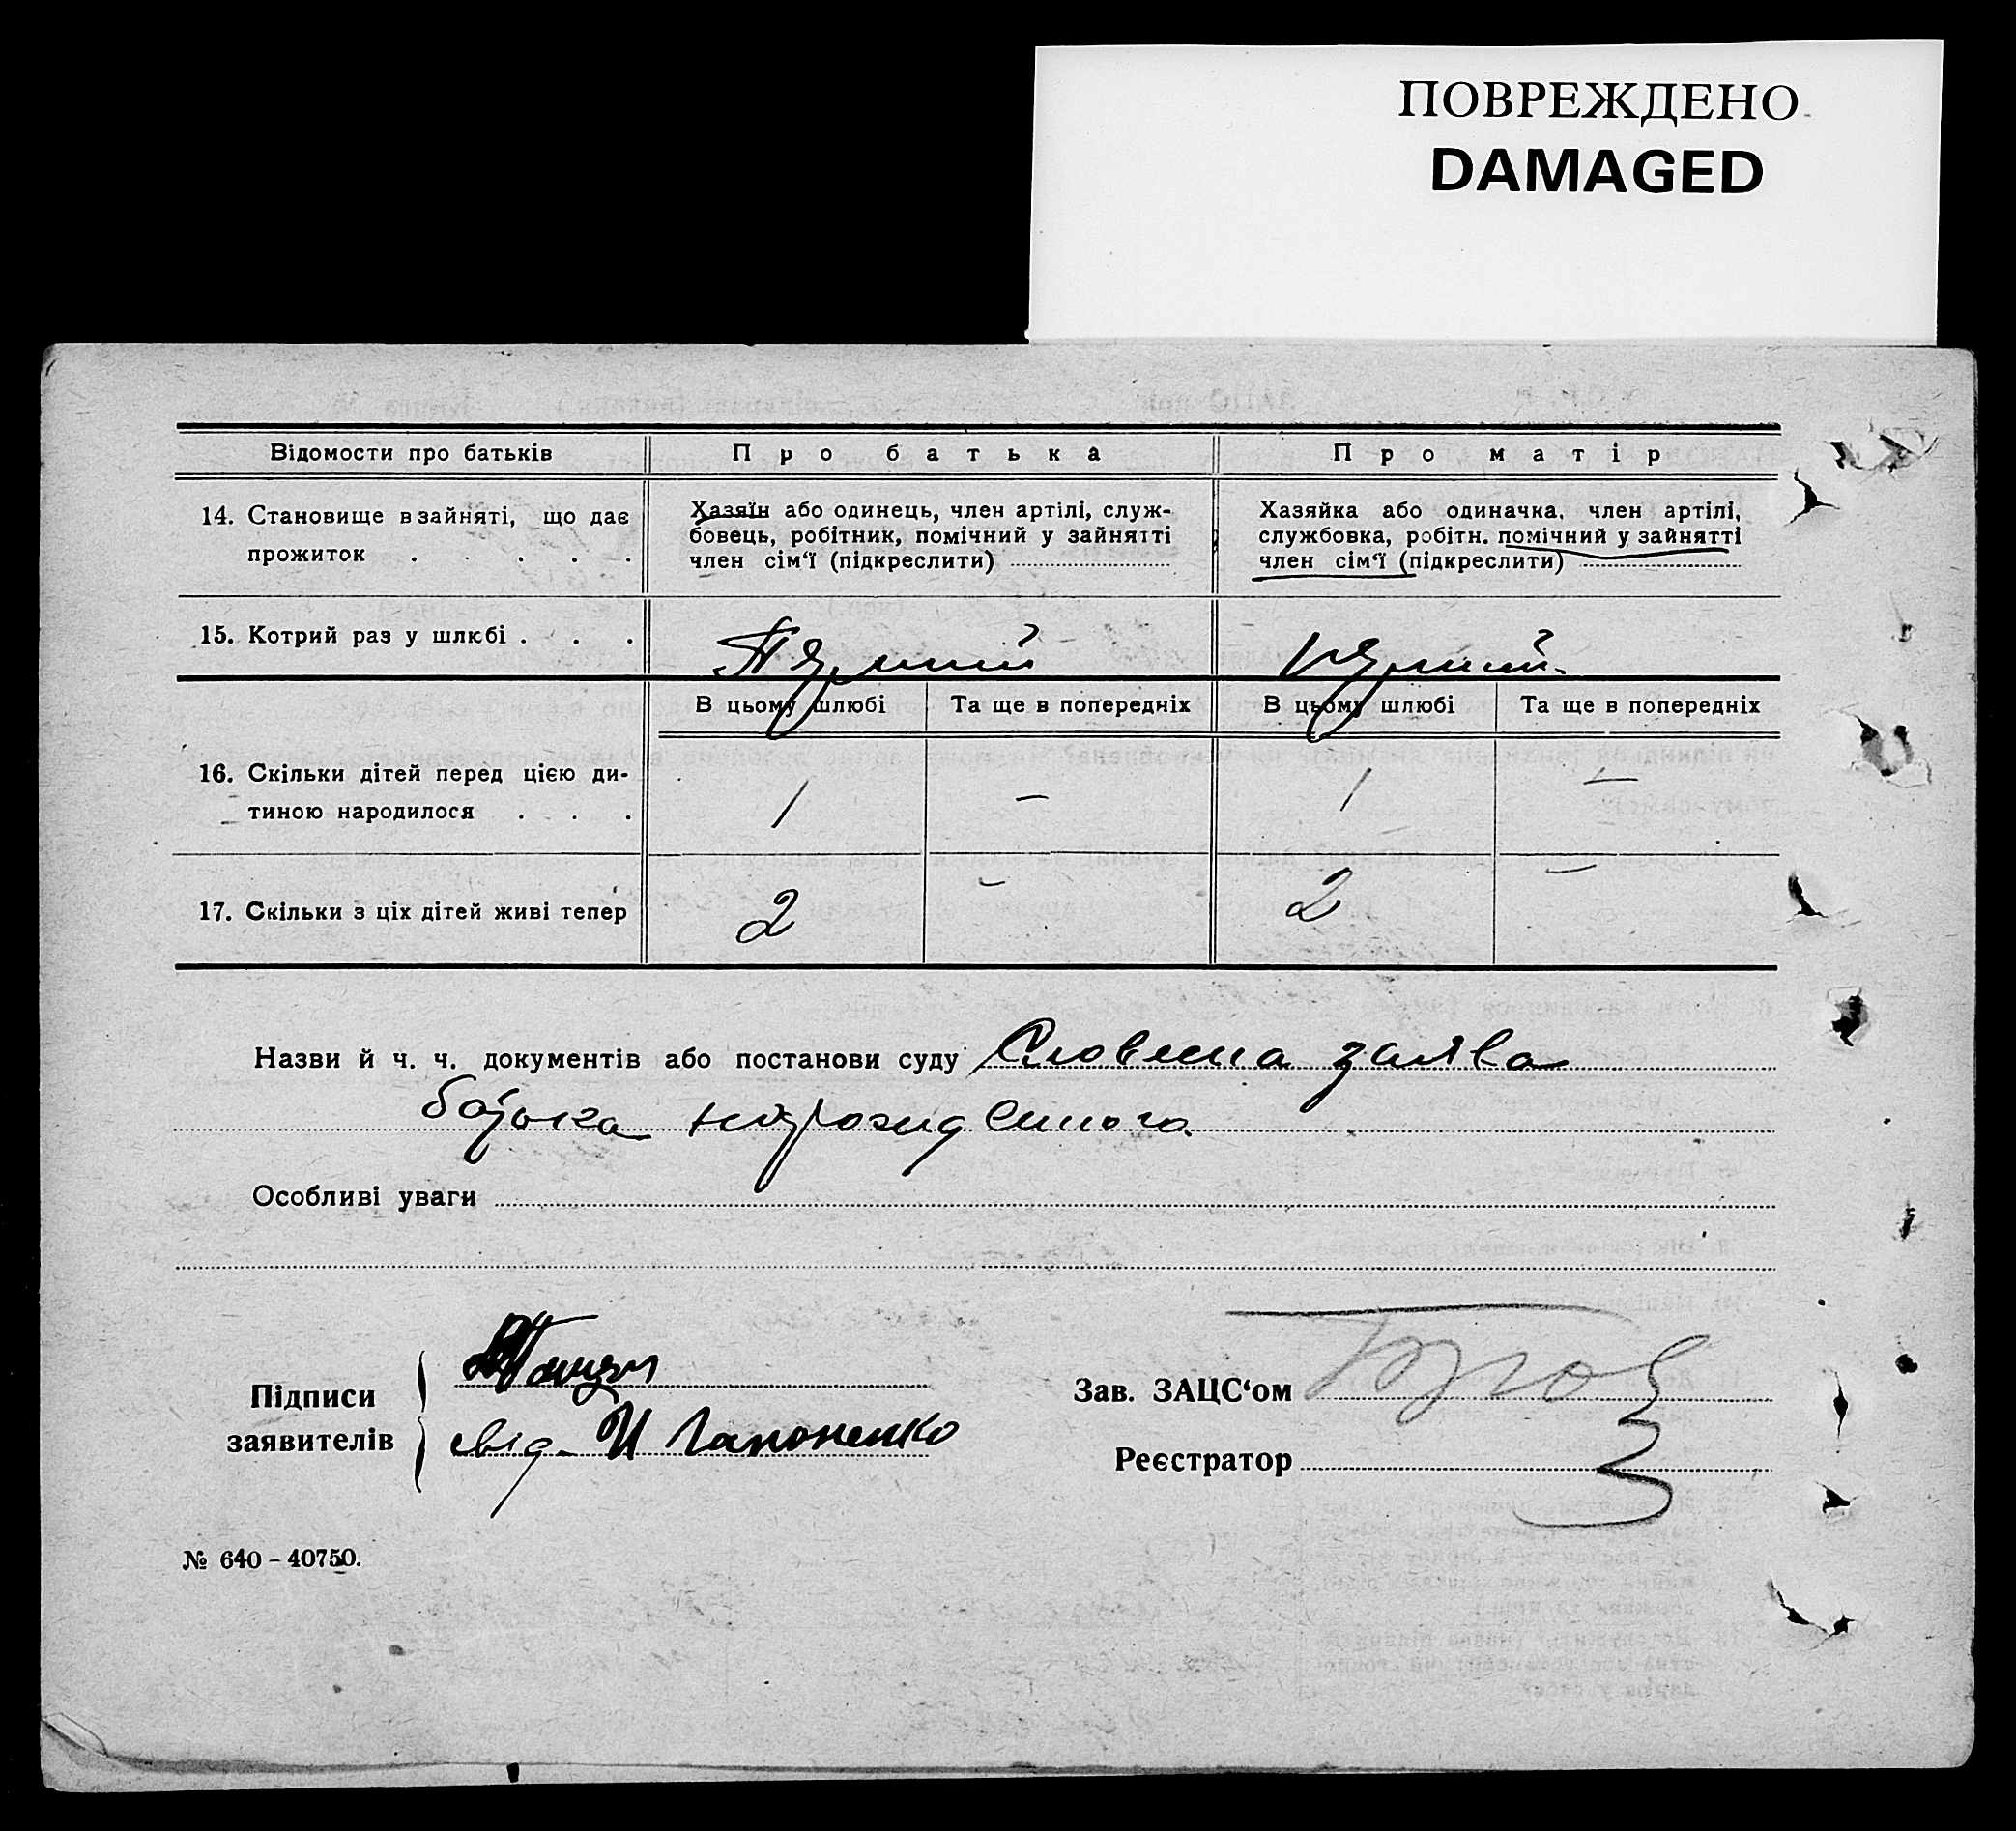 ПОВРЕЖДЕНО
DAMAGED
Відомости про батьків
Про батька
Про матір
14. Становище в зайняті, що дає
прожиток . . . . .
Хазяїн або одинець, член артілі, служ-
бовець, робітник, помічний у зайнятті
член сім‘ї (підкреслити)
Хазяйка або одиначка, член артілі,
службовка, робітн. помічний у зайнятті
член сім‘ї (підкреслити)
15. Котрий раз у шлюбі . . .
Перший
Перший
В цьому шлюбі
Та ще в попередніх
В цьому шлюбі
Та ще в попередніх
16. Скільки дітей перед цією ди-
тиною народилося . . .
1
–
1
–
17. Скільки з ціх дітей живі тепер
2
–
2
–
Назви й ч. ч. документів або постанови суду Словесна заява
батька
Особливі уваги
Підписи
заявителів
свід. И Гапоненко
Зав. ЗАЦС‘ом
Реєстратор
№ 640 – 40750.